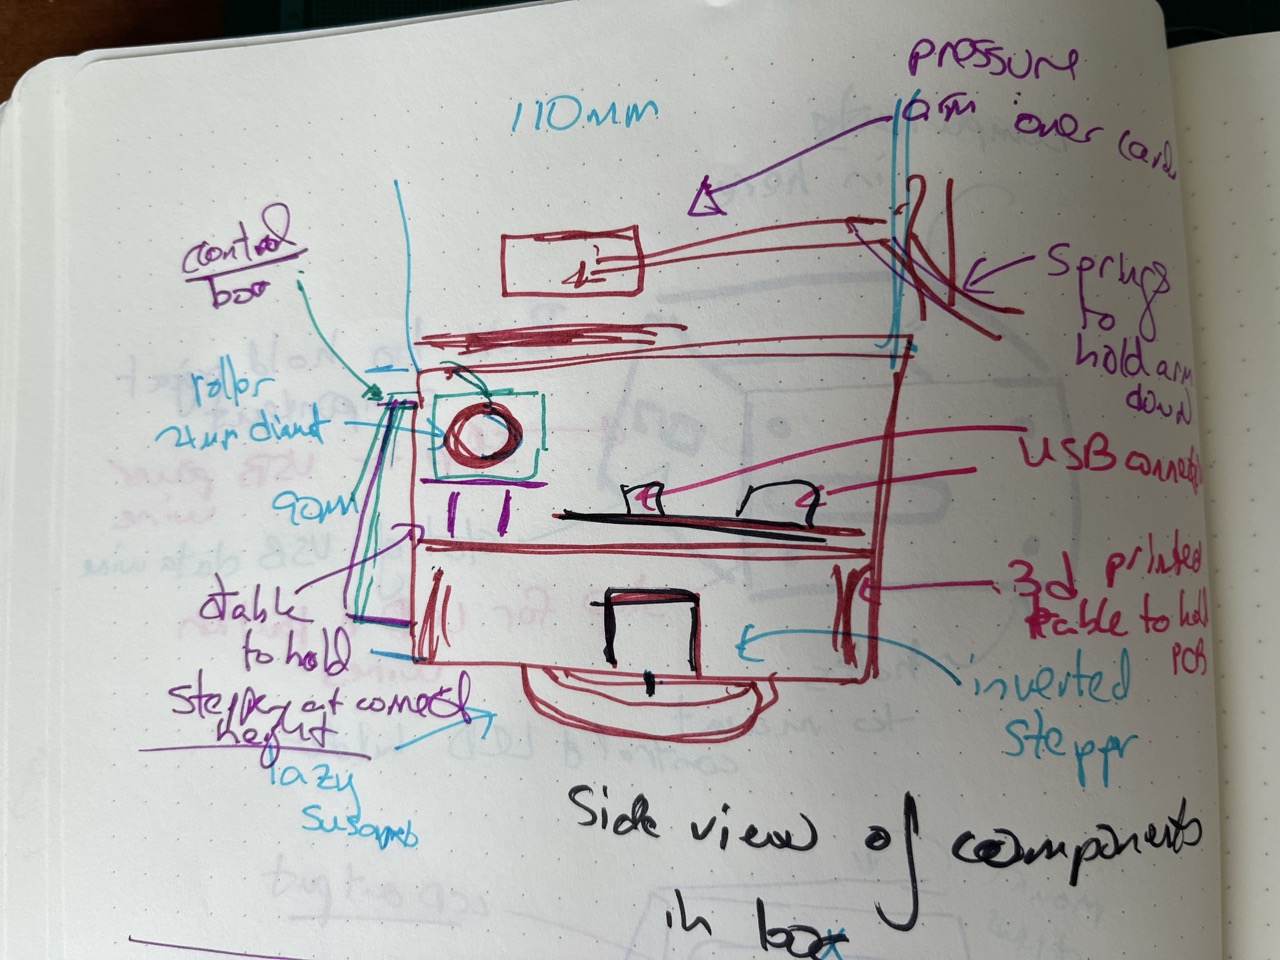 110mm
pressure
arm over card
control
box
springs
to
hold arm
down
roller
diamt
USB connects
90mm
3d printed
table to hold
PCB
stable
to hold
stepper at correct
height
inverted
stepper
lazy
Side view of components
in box